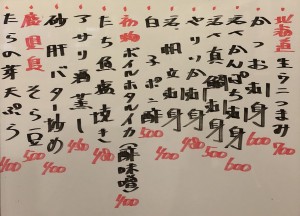 北海道 生ウニつまみ 700
かつお刺身 600
えべかんぱち刺身 600
え真鯛刺身 500
やりいか刺身 480
え帆立刺身 400
白子ポン酢 500
初物 ボイルホタルイカ(酢味噌) 400
たち魚塩焼き 480
アサリ酒蒸し 480
砂肝バター炒め 400
鹿児島 そら豆 500
たらの芽天ぷら 400